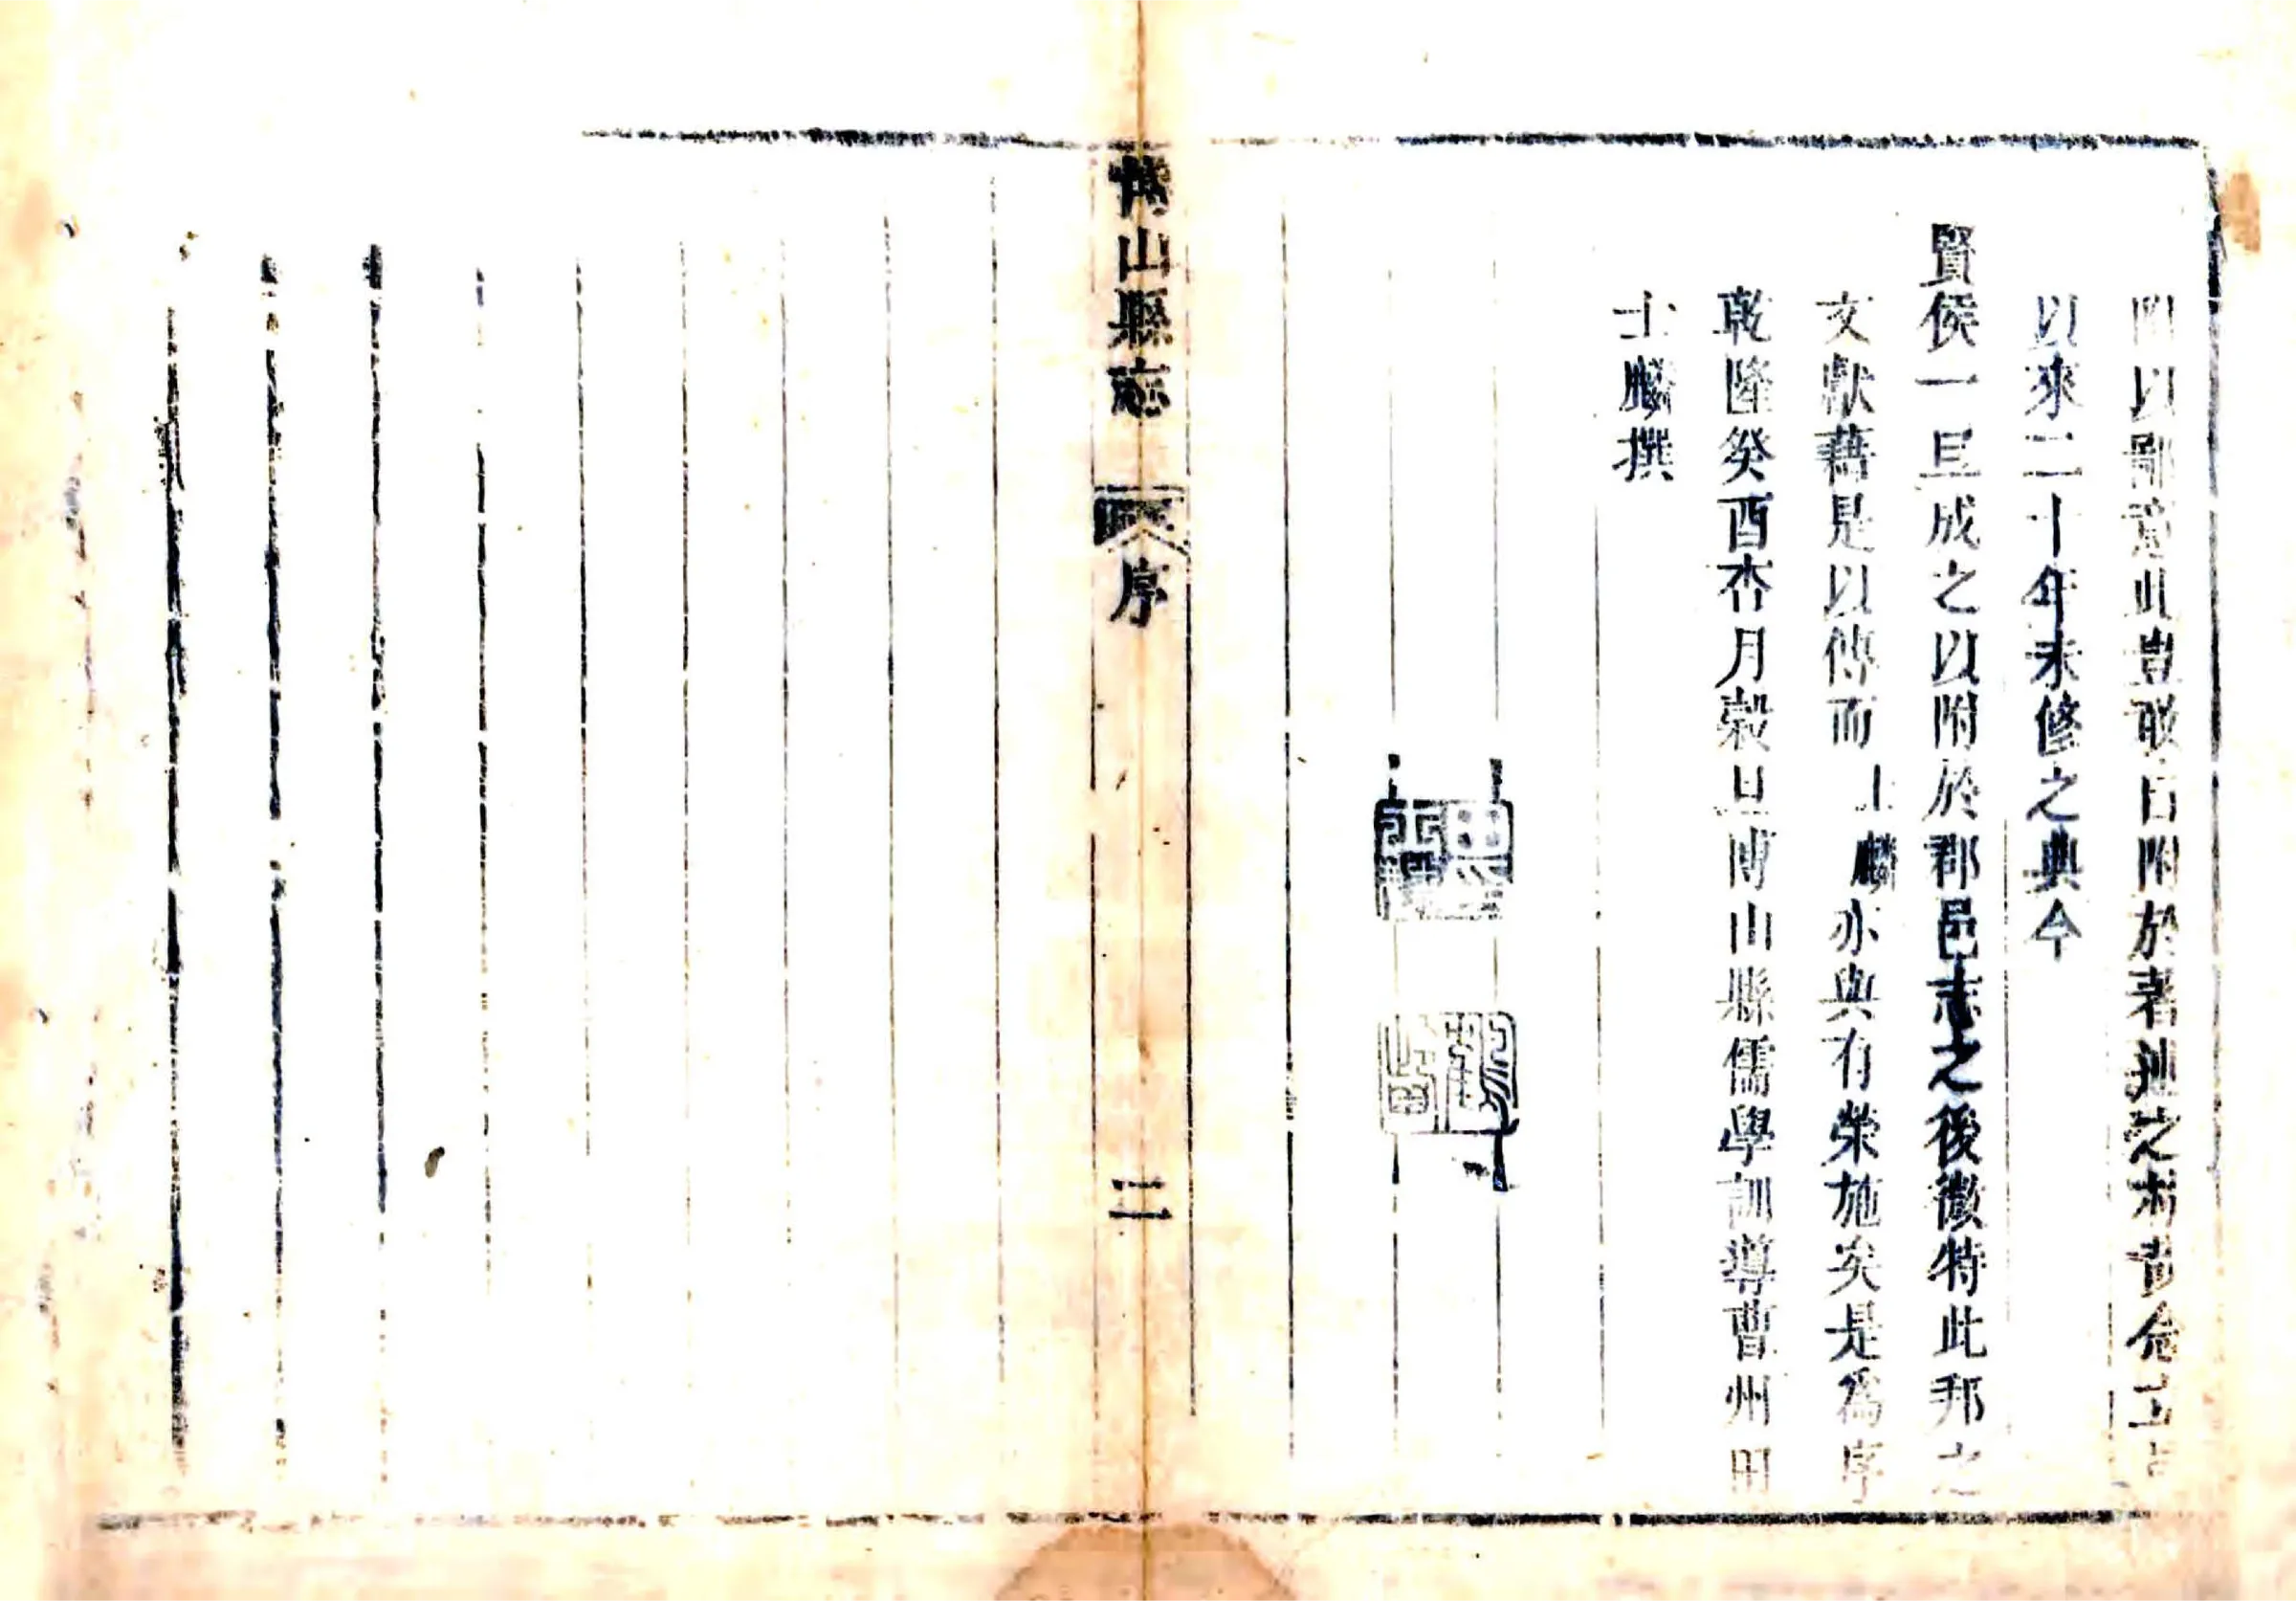 附以鄙意此豈敢自附於著述之林
以來二十年未修之典今
賢侯一旦成之以附於郡邑志之後徵特此邦之
文獻藉是以傳而士麟亦與有榮施矣是為序
乾隆癸酉杏月榖旦博山縣儒學訓導曹州田
士麟撰
博山縣志
序
二